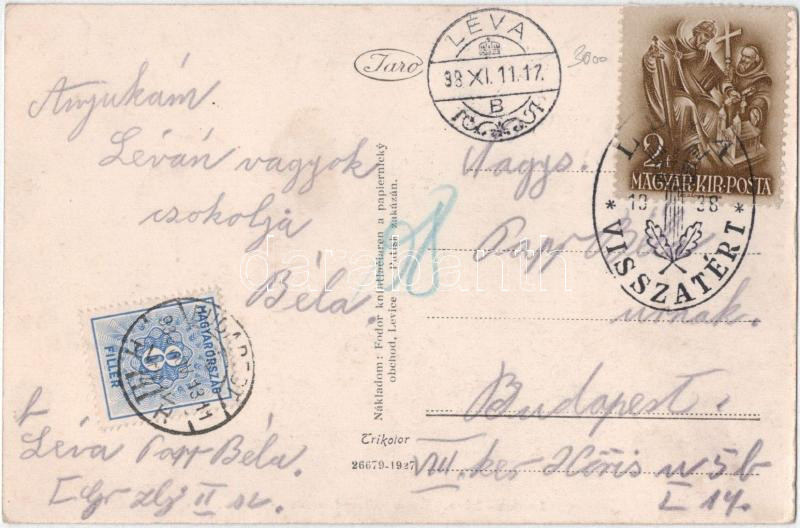 Anyukám
Léván vagyok
csokolja
Béla.
Taro
LÉVA
38 XI. 11. 17.
B
3000
2 f
MAGYAR·KIR·POSTA
LÉVA
1938
* VISSZATÉRT *
Nagys.
Papp Béla
urnak.
Budapest.
VIII. ker
I 14.
8
MAGYARORSZÁG
8
FILLÉR
BUDAPEST
Nákladom: Fodor kníhtlačiareň a papiernický
obchod, Levice Patisk zakázán.
Trikolor
26679-1927
f
Léva Papp Béla.
II
darabanth